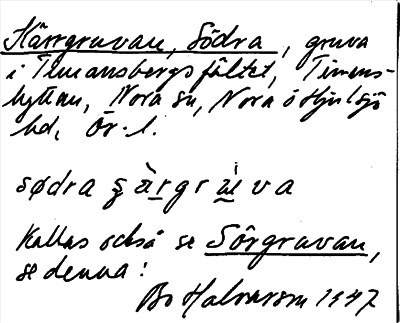 Härrgruvan, Södra, gruva
i Timansbergsfältet, Timans-
hyttan, Nora sn, Nora o Hjulsjö
hd, Ör. l.
sødra
Kallas också se Sörgruvan,
se denna!
Bo Halvarson 1947